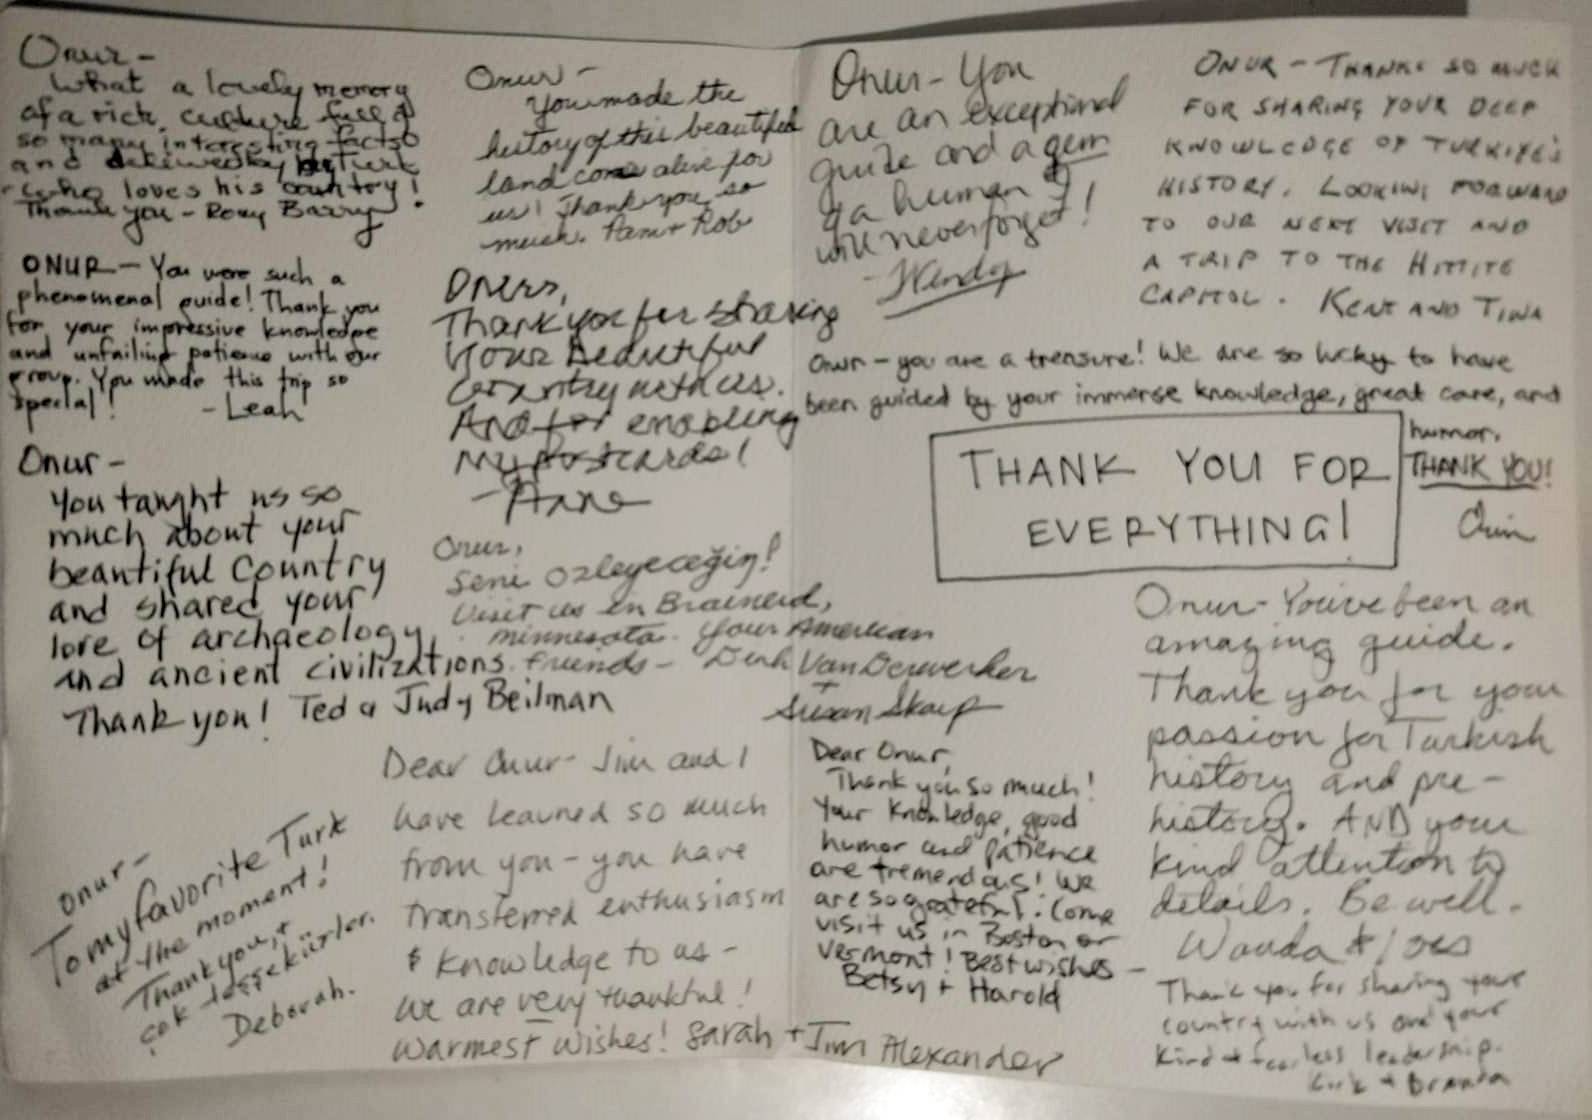 Onur -
What a lovely memory
of a rich, culture full of
so many interesting facts
and delivered by a Turk
who loves his country!
Thank you - Rosy Barry
ONUR - You were such a
phenomenal guide! Thank you
for your impressive knowledge
and unfailing patience with our
group. You made this trip so
special!
- Leah
Onur -
You taught us so
much about your
beautiful Country
and shared your
lore of archaeology,
and ancient civilizations.
Thank you! Ted & Judy Beilman
Onur -
To my favorite Turk
at the moment!
Thank you, +
çok teşşekürler.
Deborah.
Onur -
You made the
history of this beautiful
land come alive for
us! Thank you so
much. Pam + Rob
Onur,
Thank you for sharing
your beautiful
country with us.
And for enabling
my postcards!
- Anne
Onur,
Seni özleyeceğim!
Visit us in Brainerd,
Minnesota. Your American
friends - Dirk VanDerwerker
+
Susan Skarp
Dear Onur - Jim and I
have learned so much
from you - you have
transferred enthusiasm
& knowledge to us -
We are very thankful!
Warmest Wishes! Sarah + Jim Alexander
Onur - You
are an exceptional
guide and a gem
of a human I
will never forget!
- Wendy
ONUR - THANKS SO MUCH
FOR SHARING YOUR DEEP
KNOWLEDGE OF TURKIYE'S
HISTORY. LOOKING FORWARD
TO OUR NEXT VISIT AND
A TRIP TO THE HITTITE
CAPITOL. KENT AND TINA
Onur - you are a treasure! We are so lucky to have
been guided by your immense knowledge, great care, and
humor.
THANK YOU!
THANK YOU FOR
EVERYTHING!
Dear Onur,
Thank you so much!
Your Knowledge, good
humor and patience
are tremendous! We
are so grateful! Come
visit us in Boston or
Vermont! Best wishes -
Betsy + Harold
Onur - You've been an
amazing guide.
Thank you for your
passion for Turkish
history and pre-
history. AND your
kind attention to
details. Be well.
Wanda +
Thank you for sharing your
country with us and your
kind + fearless leadership.